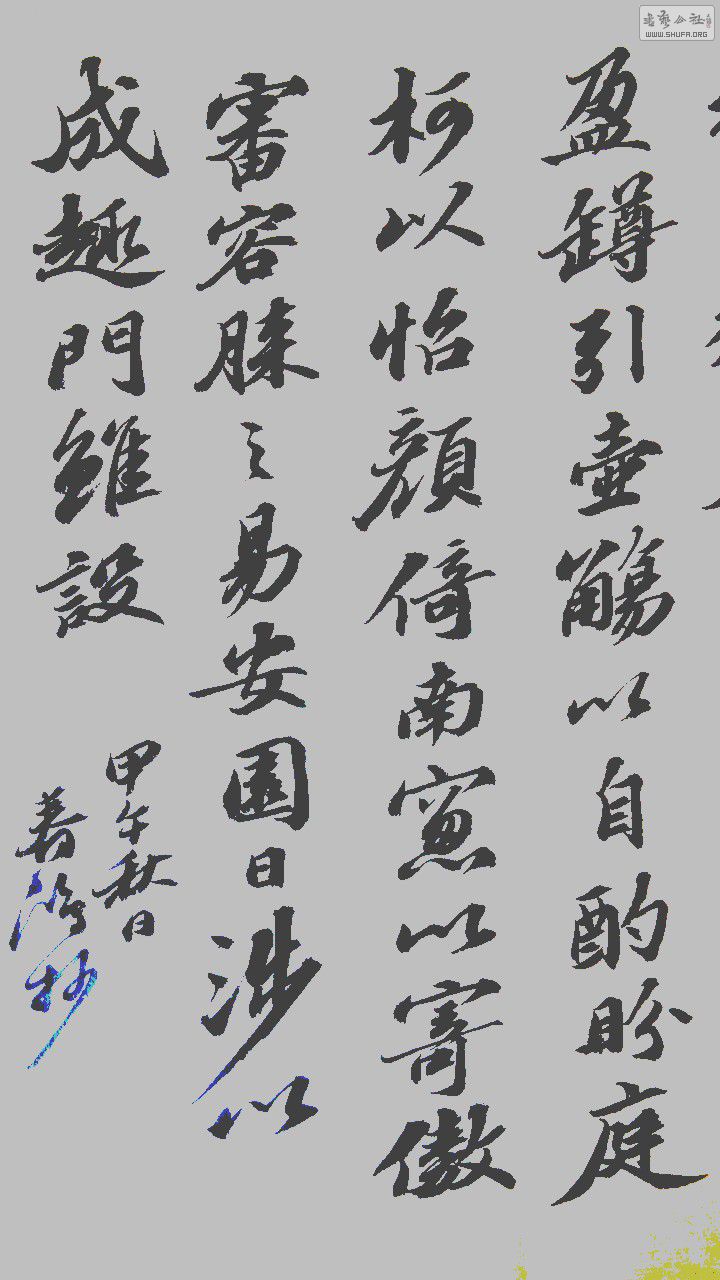 盈罇引壺觴以自酌眄庭
柯以怡顏倚南窻以寄傲
審容膝之易安園日涉以
成趣門雖設
甲午秋日
書藝公社
WWW.SHUFA.ORG